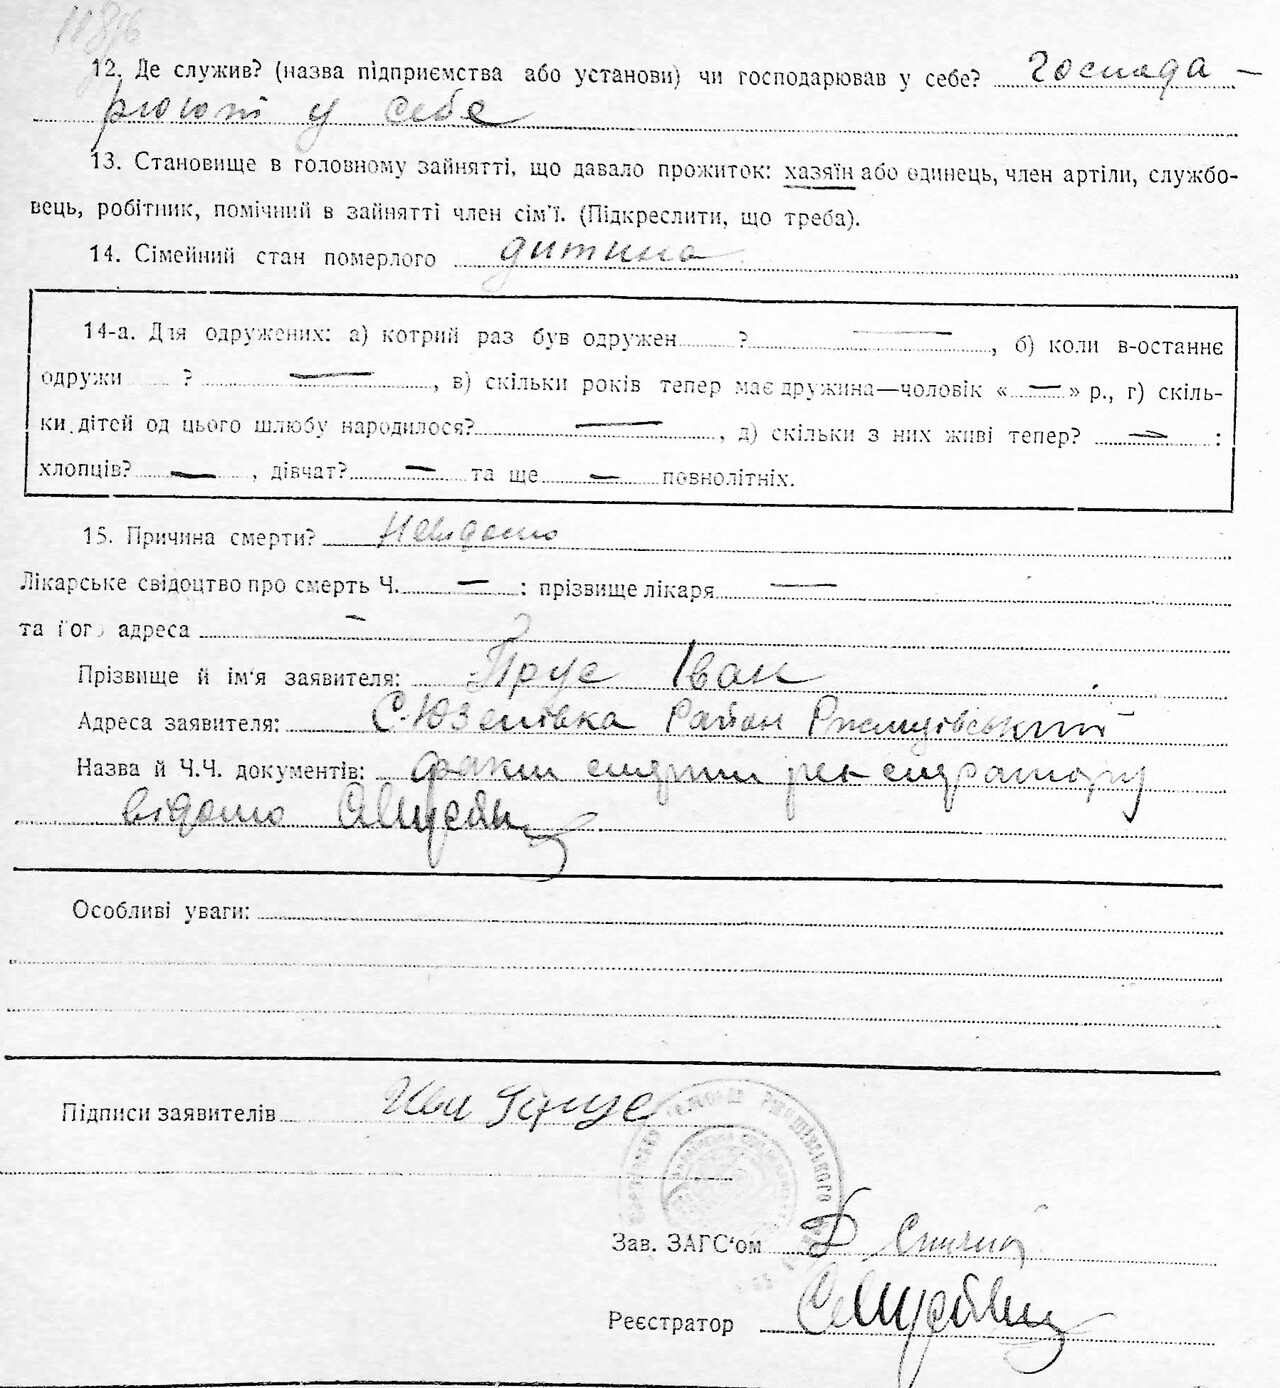 12. Де служив? (назва підприємства або установи) чи господарював у себе? Господа-
рюют у себе
13. Становище в головному зайнятті, що давало прожиток: хазяїн або одинець, член артіли, службо-
вець, робітник, помічний в зайнятті член сім'ї. (Підкреслити, що треба).
14. Сімейний стан померлого дитина
14-а. Для одружених: а) котрий раз був одружен ? —, б) коли в-останнє
одружи ? —, в) скільки років тепер має дружина—чоловік «—» р., г) скіль-
ки дітей од цього шлюбу народилося? —, д) скільки з них живі тепер? — :
хлопців? —, дівчат? — та ще — повнолітніх.
15. Причина смерти? Невідомо
Лікарське свідоцтво про смерть Ч. — : прізвище лікаря —
та його адреса —
Прізвище й ім'я заявителя: Прус Іван
Адреса заявителя: С. Юзепівка Район
Назва й Ч.Ч. документів: факт смерти
відомо
Особливі уваги:
Підписи заявителів Прус
Зав. ЗАГС'ом
Реєстратор